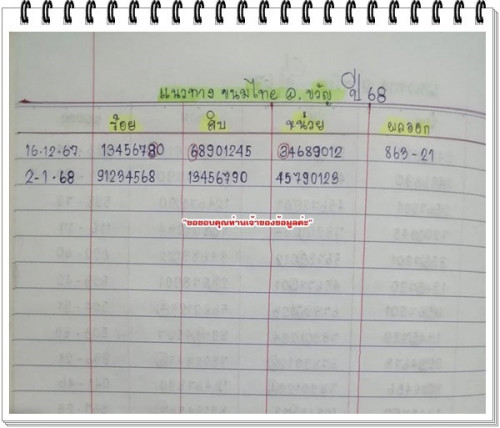 แนวทาง ขนมไทย อ. ขวัญ ปี 68
ร้อย สิบ หน่วย ผลออก
16-12-67. 13456780 68901245 34689012 863-21
2-1-68 91234568 13456790 45790123
"ขอขอบคุณท่านเจ้าของข้อมูลค่ะ"